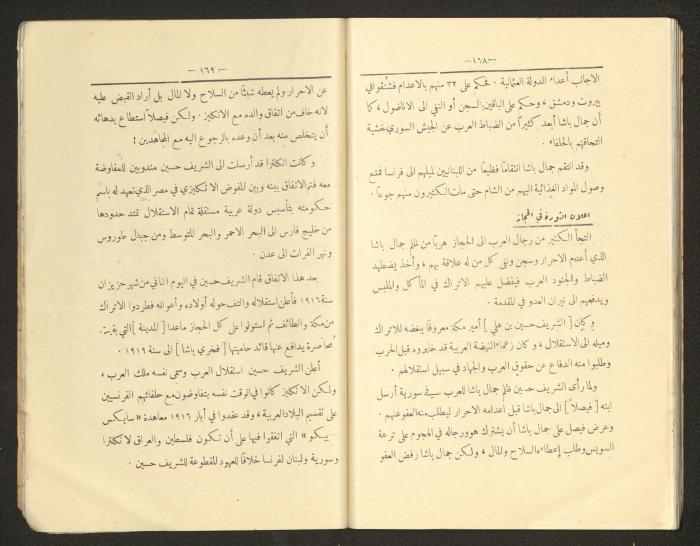 —١٦٨—
الاجانب أعداء الدولة العثمانية . فحكم على ٣٢ منهم بالاعدام فشنقوا في
بيروت ودمشق ، وحكم على الباقين بالسجن أو النفي الى الاناضول ، كما
أن جمال باشا أبعد كثيراً من الضباط العرب عن الجيش السوري خشية
التحاقهم بالحلفاء .
وقد انتقم جمال باشا انتقاماً فظيعاً من اللبنانيين لميلهم الى فرنسا فمنع
وصول المواد الغذائية اليهم من الشام حتى مات الكثيرون منهم جوعاً .
اعلان الثورة في الحجاز
التجأ الكثير من رجال العرب الى الحجاز هرباً من ظلم جمال باشا
الذي أعدم الاحرار وسجن ونفى كل من له علاقة بهم ، وأخذ يضطهد
الضباط والجنود العرب فيفضل عليهم الاتراك في المأكل والملبس
ويدفعهم الى نيران العدو في المقدمة .
وكان [ الشريف حسين بن علي ] أمير مكة معروفاً ببغضه للاتراك
وميله الى الاستقلال ، وكان زعماء النهضة العربية قد خابروه قبل الحرب
وطلبوا منه الدفاع عن حقوق العرب والجهاد في سبيل استقلالهم .
ولما رأى الشريف حسين ظلم جمال باشا للعرب في سورية أرسل
ابنه [ فيصلاً ] الى جمال باشا قبل اعدامه الاحرار ليطلب منه العفو عنهم .
وعرض فيصل على جمال باشا أن يشترك هو ورجاله في الهجوم على ترعة
السويس وطلب إعطاءه السلاح والمال ، ولكن جمال باشا رفض العفو
—١٦٩—
عن الاحرار ولم يعطه شيئاً من السلاح ولا المال بل أراد القبض عليه
لانه خاف من اتفاق والده مع الانكليز . ولكن فيصلاً استطاع بدهائه
أن يتخلص منه بعد أن وعده بالرجوع اليه مع المجاهدين !
وكانت انكلترا قد أرسلت الى الشريف حسين مندوبين للمفاوضة
معه فتم الاتفاق بينه وبين المفوض الانكليزي في مصر الذي تعهد له باسم
حكومته بتأسيس دولة عربية مستقلة تمام الاستقلال تمتد حدودها
من خليج فارس الى البحر الاحمر والبحر المتوسط ومن جبال طوروس
ونهر الفرات الى عدن .
بعد هذا الاتفاق قام الشريف حسين في اليوم الثاني من شهر حزيران
سنة ١٩١٦ فأعلن استقلاله والتف حوله أولاده وأعوانه فطردوا الاتراك
من مكة والطائف ثم استولوا على كل الحجاز ماعدا [ المدينة ] التي بقيت
محاصرة يدافع عنها قائد حاميتها [ فخري باشا ] الى سنة ١٩١٩ .
أعلن الشريف حسين استقلال العرب وسمى نفسه ملك العرب ،
ولكن الانكليز كانوا في الوقت نفسه يتفاوضون مع حلفائهم الفرنسيين
على تقسيم البلاد العربية ، وقد عقدوا في أيار ١٩١٦ معاهدة « سايكس
— بيكو » التي اتفقوا فيها على أن تكون فلسطين والعراق لانكلترا
وسورية ولبنان لفرنسا خلافاً للعهود المقطوعة للشريف حسين .